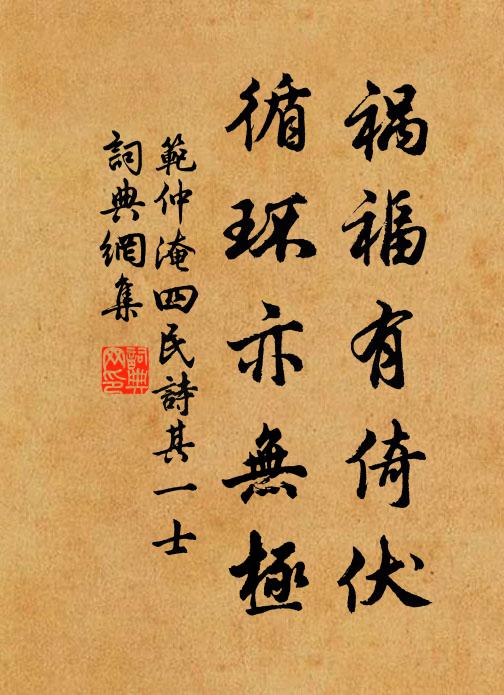 祸福有倚伏
循环亦無極
範仲淹四民詩其一士
詞典網集
詞典網印